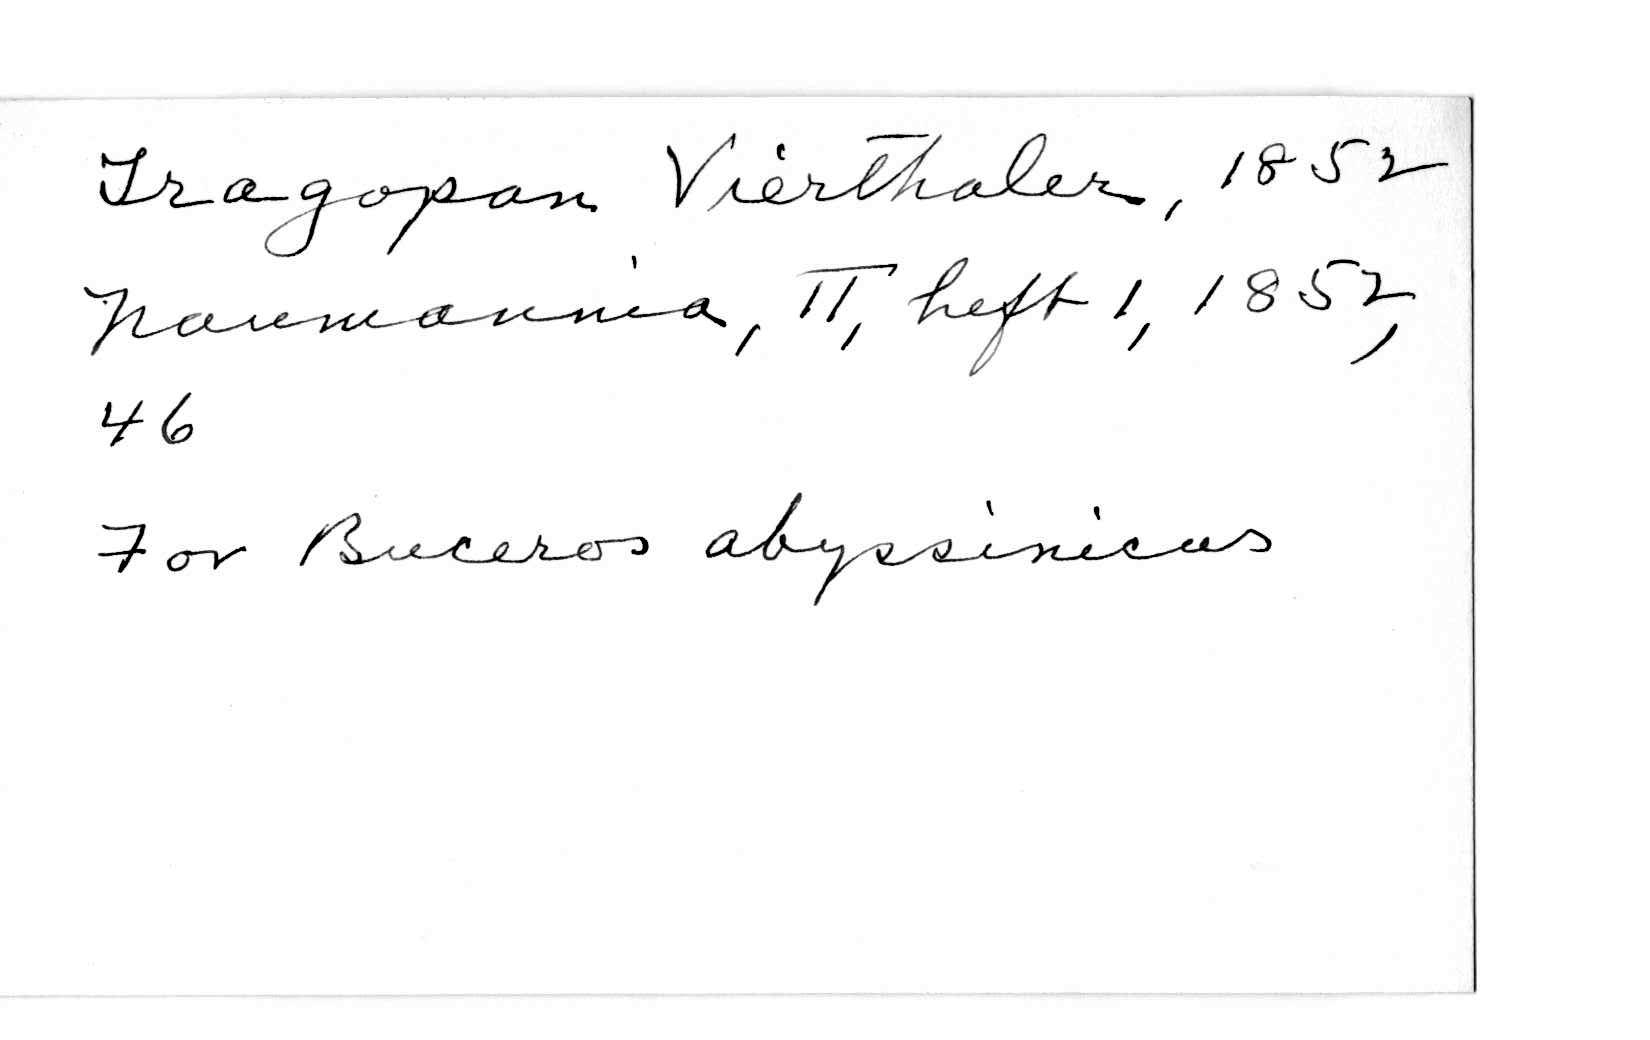 Tragopan Vierthaler, 1852
Naumannia, II, heft 1, 1852,
46
For Buceros abyssinicus